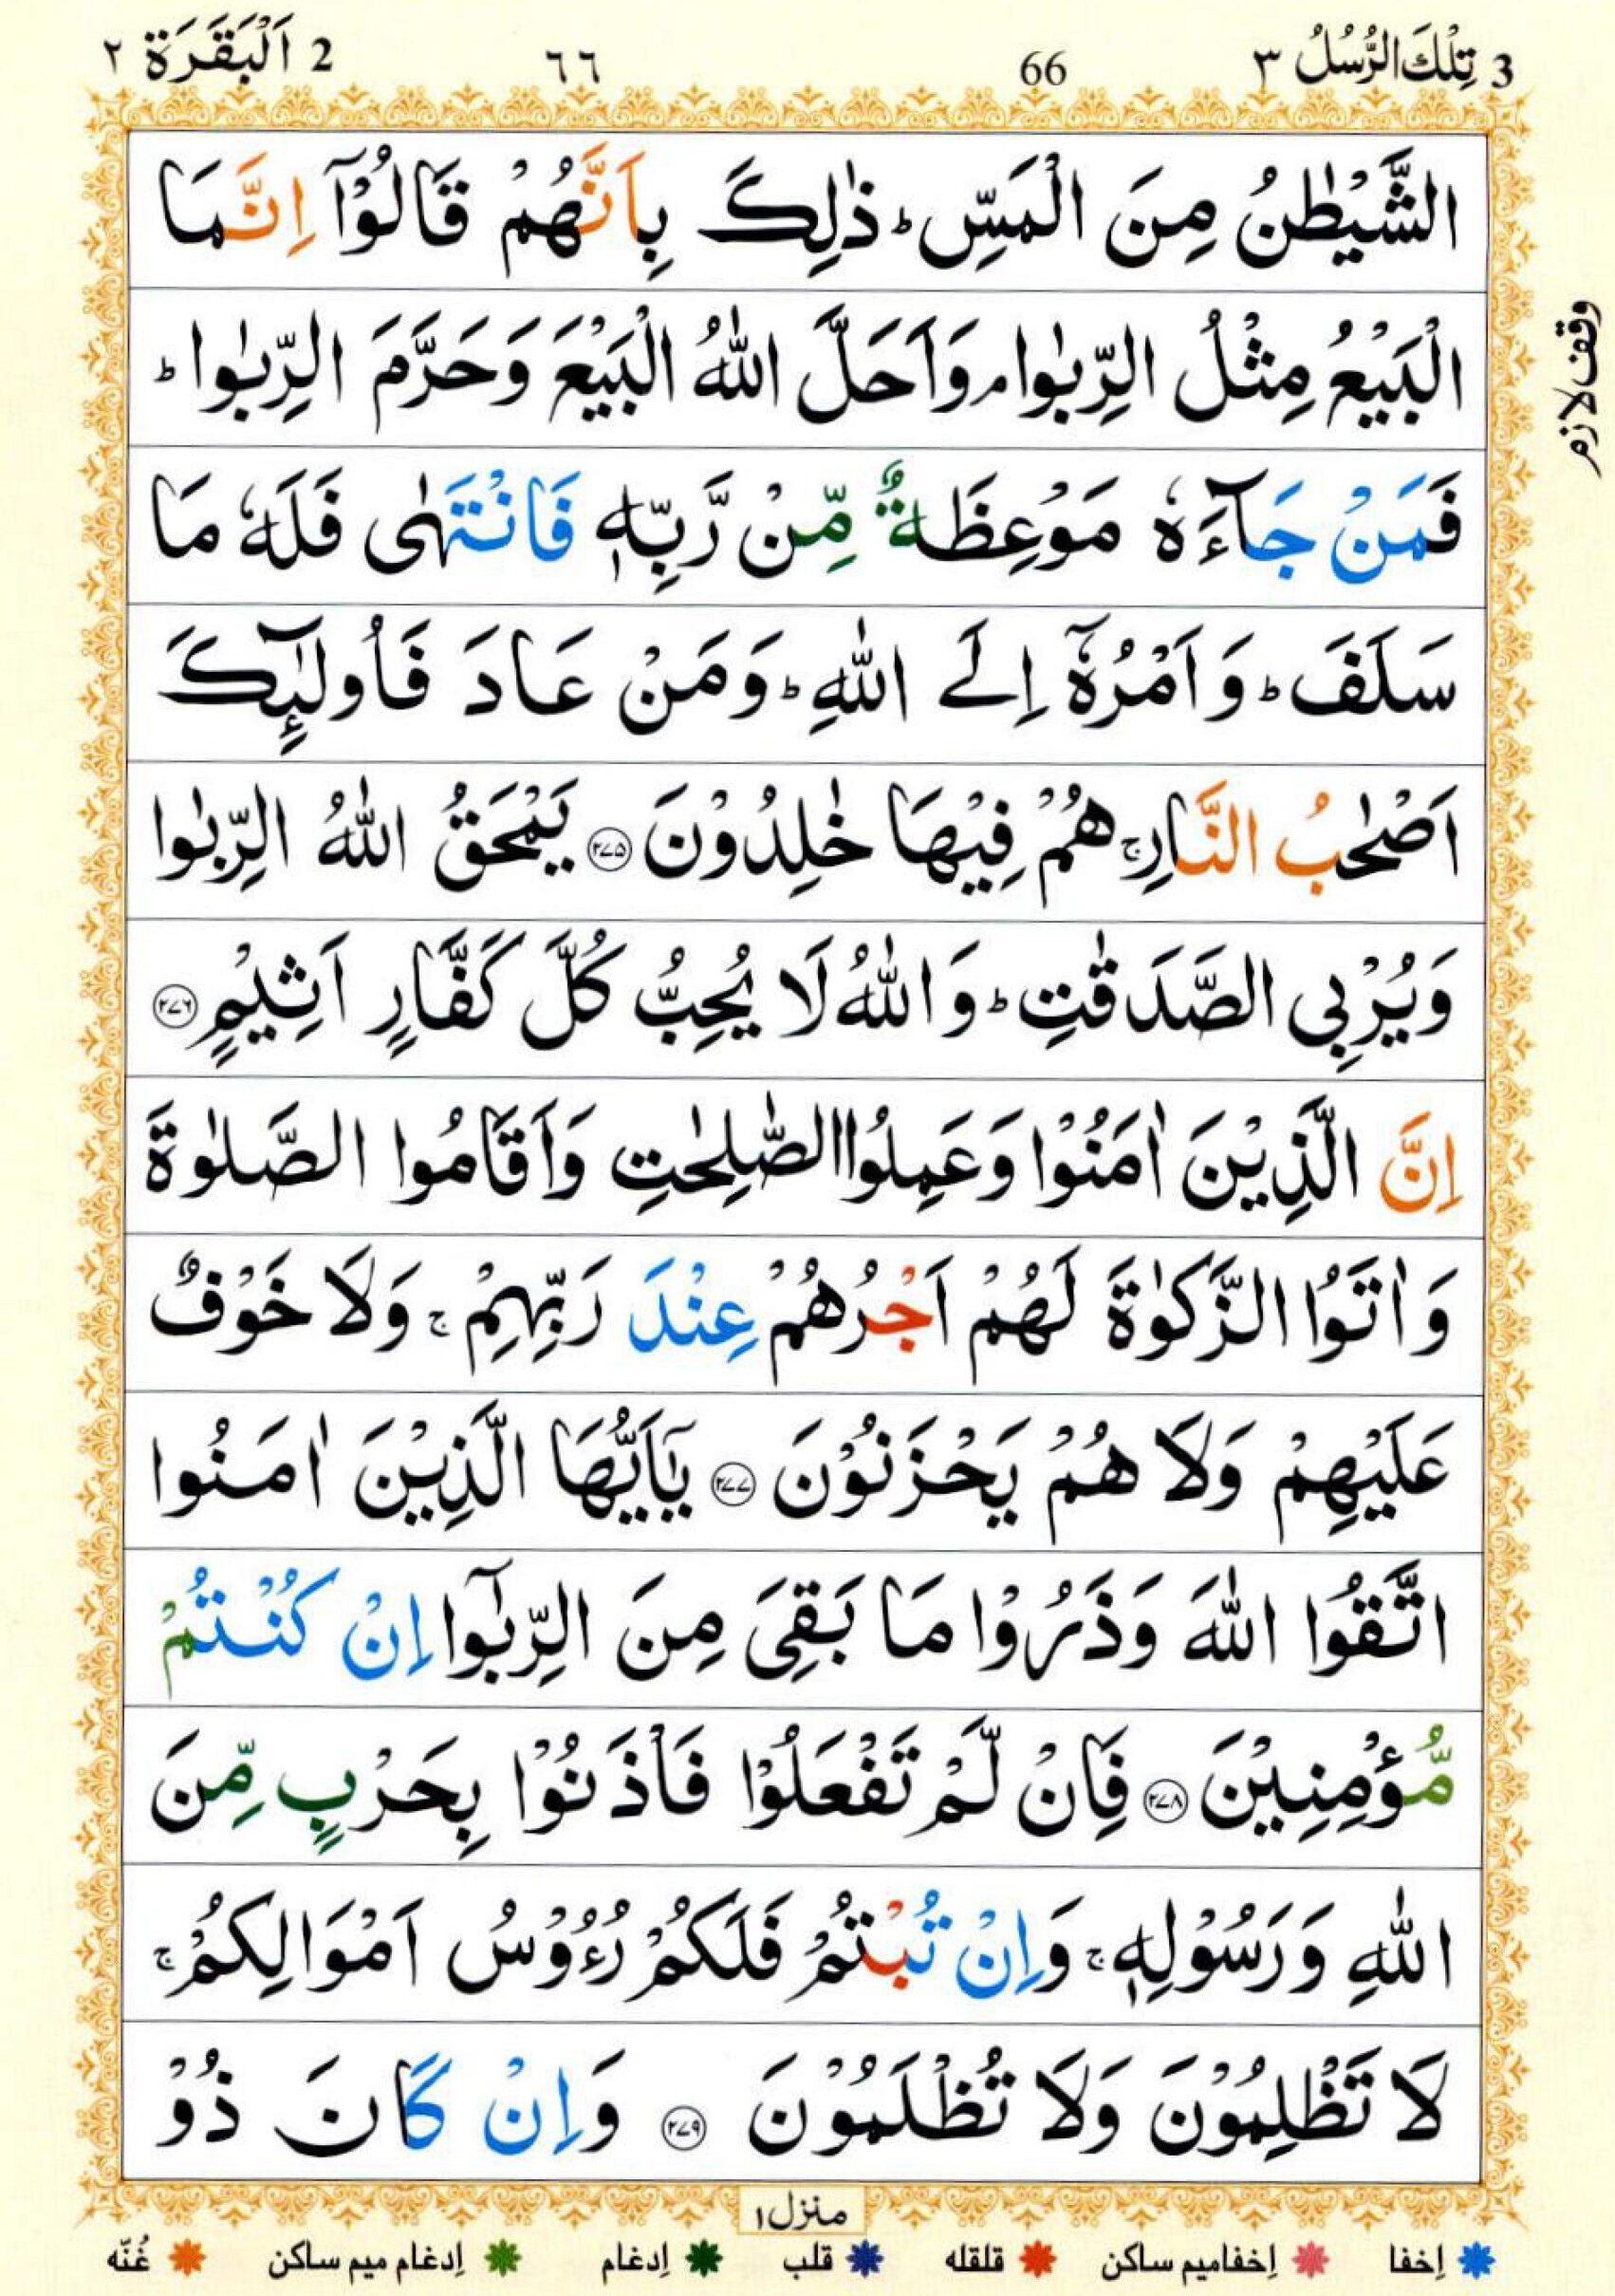 3 تِلْكَ الرُّسُلُ ٣ 66 ٦٦ 2 اَلْبَقَرَة ٢
الشَّيْطٰنُ مِنَ الْمَسِّ ؕ ذٰلِكَ بِاَنَّهُمْ قَالُوْۤا اِنَّمَا
الْبَيْعُ مِثْلُ الرِّبٰوا ۘ وَاَحَلَّ اللّٰهُ الْبَيْعَ وَحَرَّمَ الرِّبٰوا ؕ
وقف لازم
فَمَنْ جَآءَهٗ مَوْعِظَةٌ مِّنْ رَّبِّهٖ فَانْتَهٰى فَلَهٗ مَا
سَلَفَ ؕ وَاَمْرُهٗۤ اِلَى اللّٰهِ ؕ وَمَنْ عَادَ فَاُولٰٓئِكَ
اَصْحٰبُ النَّارِ ۚ هُمْ فِيْهَا خٰلِدُوْنَ ۝۲۷۵ يَمْحَقُ اللّٰهُ الرِّبٰوا
وَيُرْبِى الصَّدَقٰتِ ؕ وَاللّٰهُ لَا يُحِبُّ كُلَّ كَفَّارٍ اَثِيْمٍ ۝۲۷۶
اِنَّ الَّذِيْنَ اٰمَنُوْا وَعَمِلُوا الصّٰلِحٰتِ وَاَقَامُوا الصَّلٰوةَ
وَاٰتَوُا الزَّكٰوةَ لَهُمْ اَجْرُهُمْ عِنْدَ رَبِّهِمْ ۚ وَلَا خَوْفٌ
عَلَيْهِمْ وَلَا هُمْ يَحْزَنُوْنَ ۝۲۷۷ يٰۤاَيُّهَا الَّذِيْنَ اٰمَنُوا
اتَّقُوا اللّٰهَ وَذَرُوْا مَا بَقِىَ مِنَ الرِّبٰۤوا اِنْ كُنْتُمْ
مُّؤْمِنِيْنَ ۝۲۷۸ فَاِنْ لَّمْ تَفْعَلُوْا فَاْذَنُوْا بِحَرْبٍ مِّنَ
اللّٰهِ وَرَسُوْلِهٖ ۚ وَاِنْ تُبْتُمْ فَلَكُمْ رُءُوْسُ اَمْوَالِكُمْ ۚ
لَا تَظْلِمُوْنَ وَلَا تُظْلَمُوْنَ ۝۲۷۹ وَاِنْ كَانَ ذُوْ
منزل ۱
اِخفا اِخفامیم ساکن قلقله قلب اِدغام اِدغام میم ساکن غُنّه